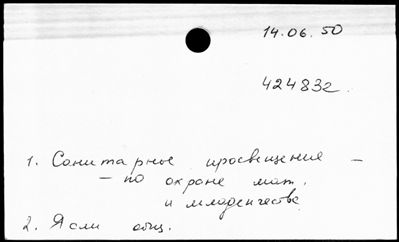 14.06.50
424832.
1. Санитарное просвещение -
- по охране мат.
и младенчества
2. Ясли общ.